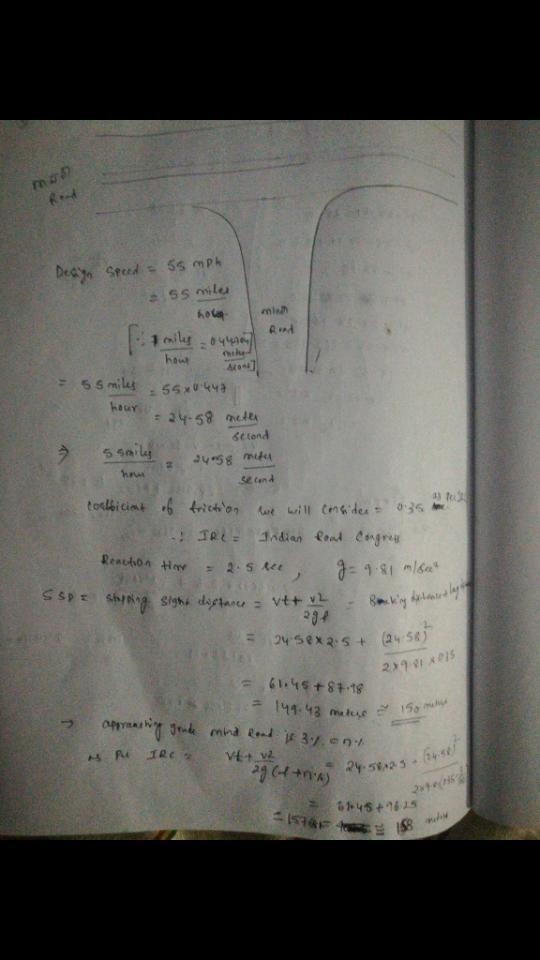 Road
Design speed = 55 mph
= 55 miles/hour
Road
[∵ 1 miles/hour = meter/second]
= 55 miles/hour = 55×0.447
= 24.58 meter/second
⇒ 55 miles/hour = 24.58 meter/second
coefficient of friction we will consider = 0.35 as per
∵ IRC = Indian Road Congress
Reaction time = 2.5 sec, g = 9.81 m/sec²
SSD = stopping sight distance = vt + v²/2gf = Braking distance + lag
= 24.58×2.5 + (24.58)²/2×9.81×0.35
= 61.45 + 87.98
= 149.43 meters ≅ 150 meters
→ approaching grade Road is 3% = n%
as per IRC = vt + v²/2g(f + n%) = 24.58×2.5 + (24.58)²
= 61.45 + 96.25
= ≅ 158 meters